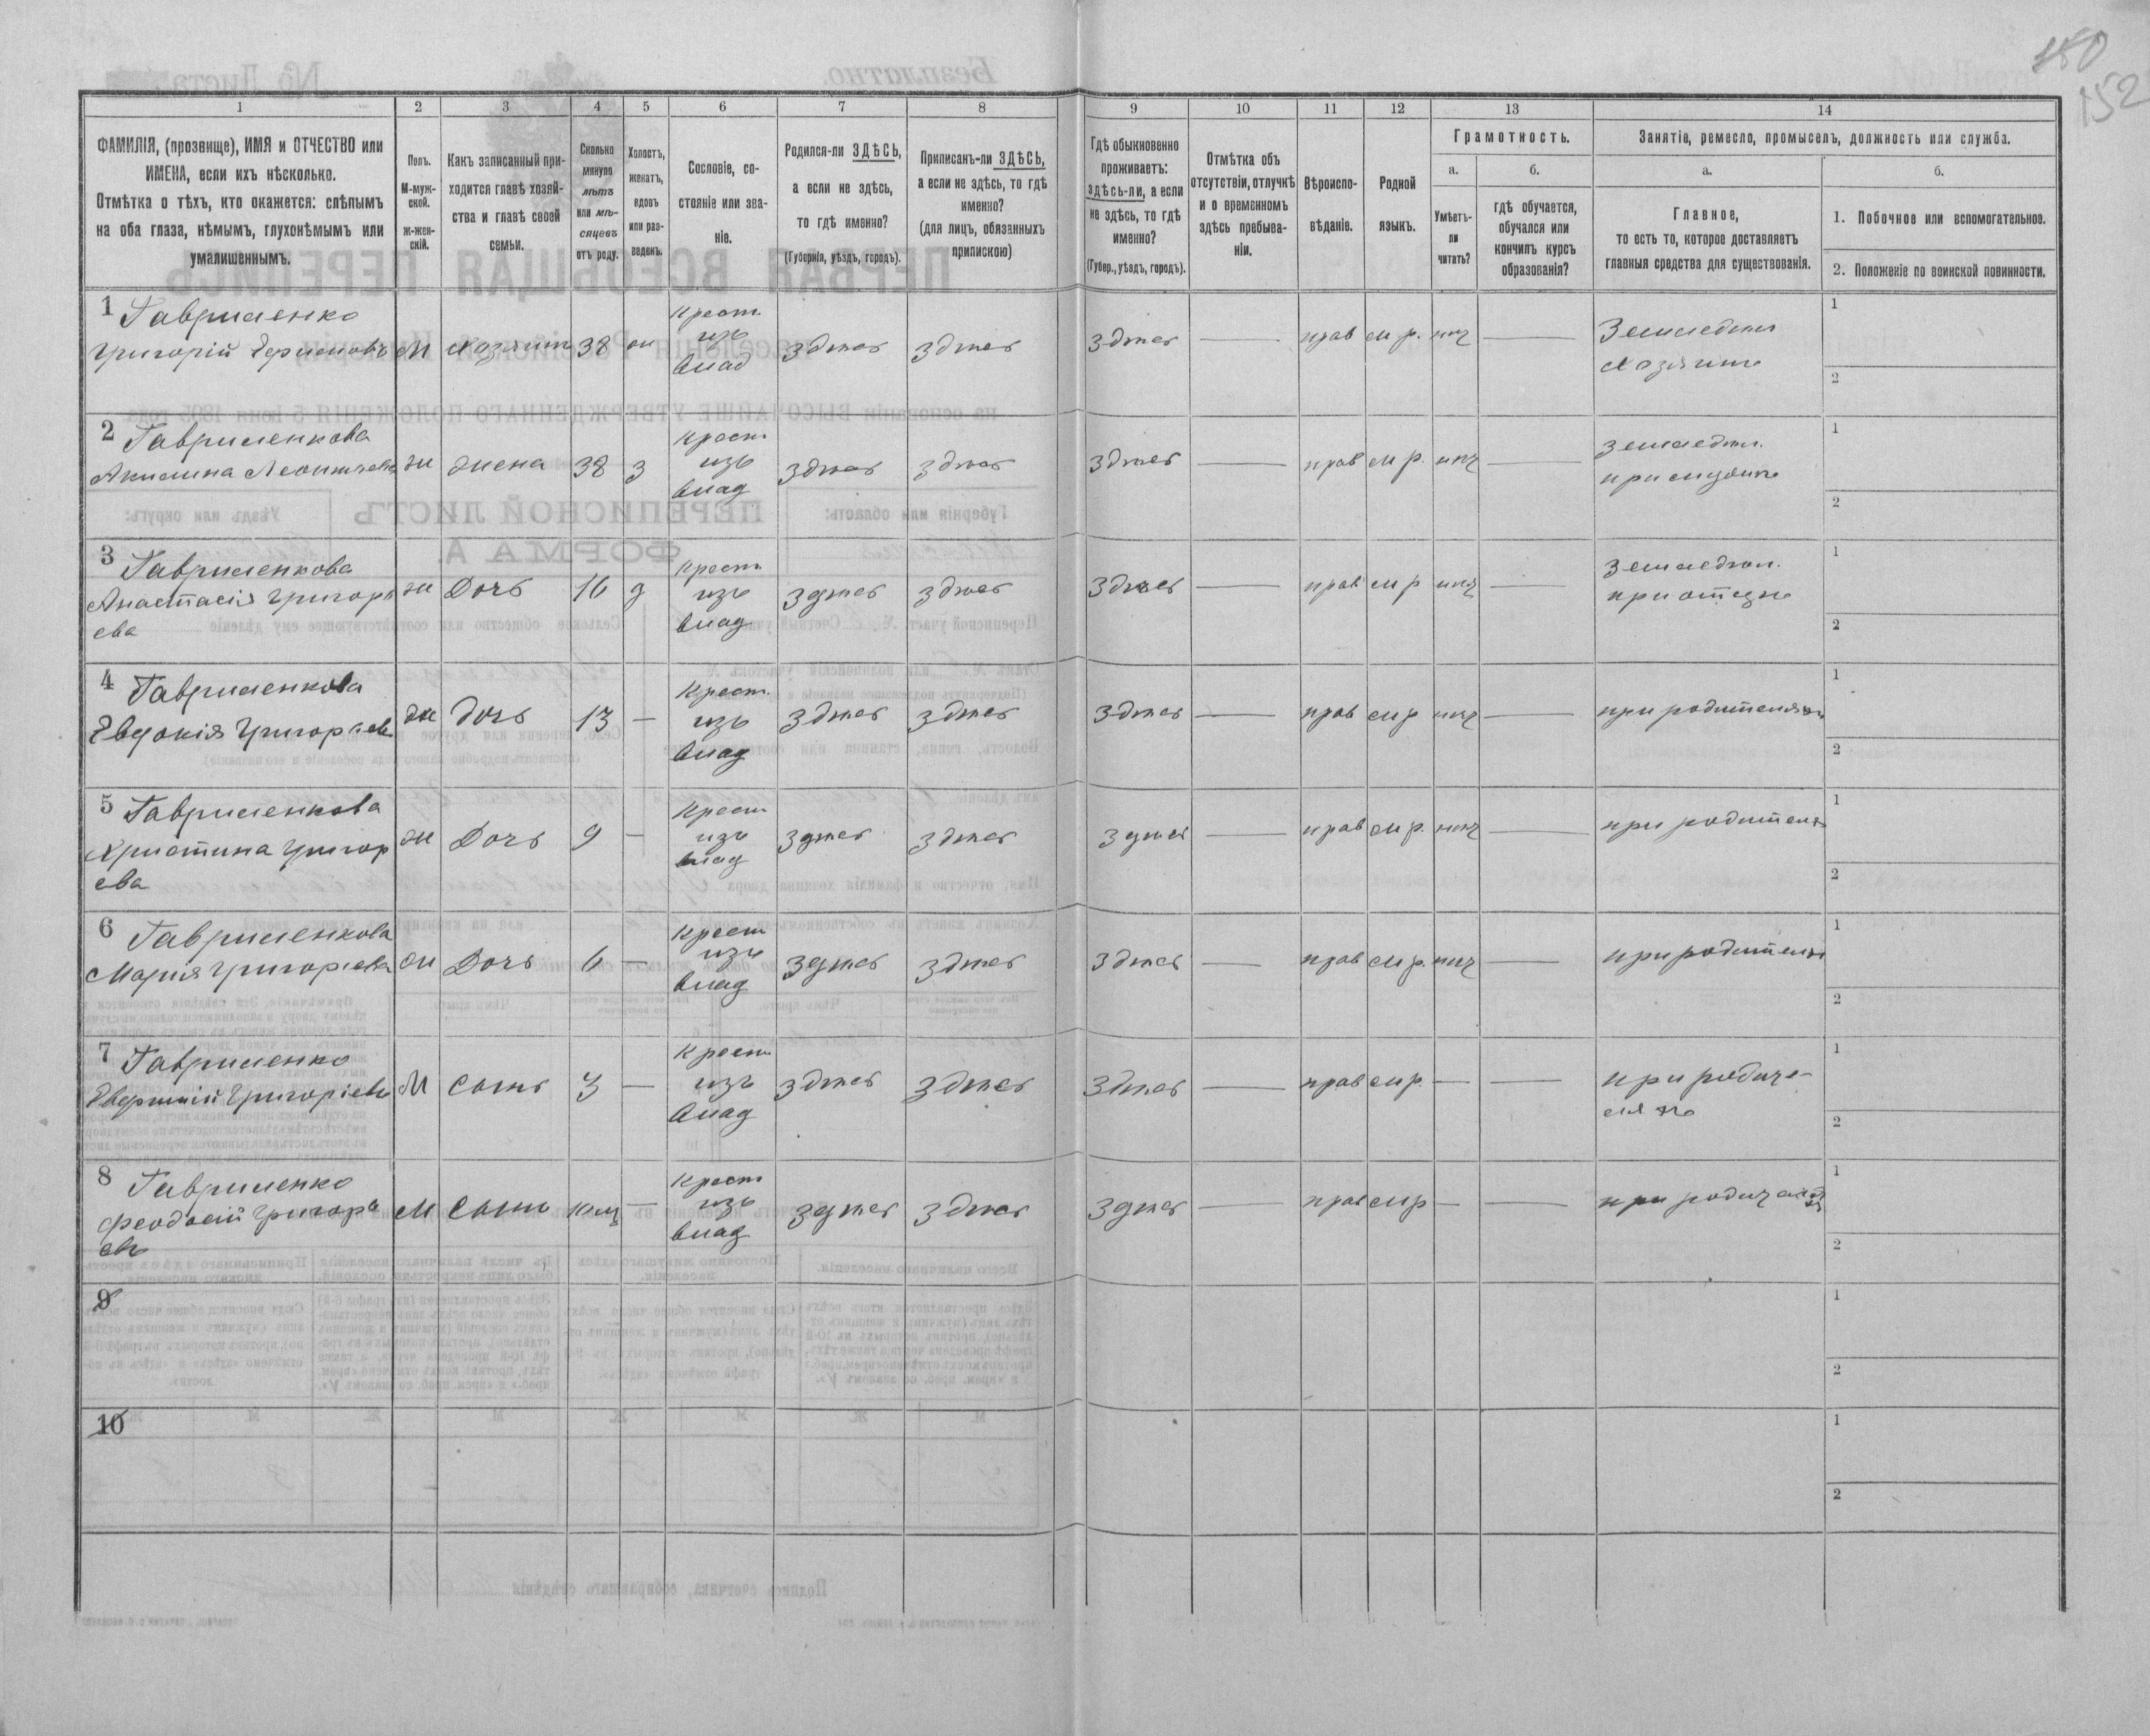 150
152
1 2 3 4 5 6 7 8 9 10 11 12 13 14
ФАМИЛІЯ, (прозвище), ИМЯ и ОТЧЕСТВО или
ИМЕНА, если ихъ нѣсколько.
Отмѣтка о тѣхъ, кто окажется: слѣпымъ
на оба глаза, нѣмымъ, глухонѣмымъ или
умалишеннымъ.
Полъ.
М-муж-
ской.
Ж-жен-
скій.
Какъ записанный при-
ходится главѣ хозяй-
ства и главѣ своей
семьи.
Сколько
минуло
лѣтъ
или мѣ-
сяцевъ
отъ роду.
Холостъ,
женатъ,
вдовъ
или раз-
веденъ.
Сословіе, со-
стояніе или зва-
ніе.
Родился-ли ЗДѢСЬ,
а если не здѣсь,
то гдѣ именно?
(Губернія, уѣздъ, городъ).
Приписанъ-ли ЗДѢСЬ,
а если не здѣсь, то гдѣ
именно?
(для лицъ, обязанныхъ
припискою)
Гдѣ обыкновенно
проживаетъ:
здѣсь-ли, а если
не здѣсь, то гдѣ
именно?
(Губер., уѣздъ, городъ).
Отмѣтка объ
отсутствіи, отлучкѣ
и о временномъ
здѣсь пребыва-
ніи.
Вѣроиспо-
вѣданіе.
Родной
языкъ.
Грамотность.
а.
Умѣетъ-
ли
читать?
б.
гдѣ обучается,
обучался или
кончилъ курсъ
образованія?
Занятіе, ремесло, промыселъ, должность или служба.
а.
Главное,
то есть то, которое доставляетъ
главныя средства для существованія.
б.
1. Побочное или вспомогательное.
2. Положеніе по воинской повинности.
1 Гавриленко
Григорій М хозяинъ 38 ж Крест. изъ влад здѣсь здѣсь здѣсь — прав м.р. нѣт — Земледѣл хозяинъ 1 2
2 Гавриленкова
Акилина Леонтьева ж жена 38 з Крест изъ влад здѣсь здѣсь здѣсь — прав м р. нѣт — земледѣл. при мужѣ 1 2
3 Гавриленкова
Анастасія Григорь
ева ж Дочь 16 д Крест изъ влад здѣсь здѣсь здѣсь — прав м р нѣт — земледѣл. при отцѣ 1 2
4 Гавриленкова
Евдокія Григорьев ж дочь 13 — Крест. изъ влад здѣсь здѣсь здѣсь — прав м р нѣт — при родителях 1 2
5 Гавриленкова
Христина Григор
ева ж Дочь 9 — Крест изъ влад здѣсь здѣсь здѣсь — прав м р. нѣт — при родителях 1 2
6 Гавриленкова
Марія Григорьева ж Дочь 6 — Крест изъ влад здѣсь здѣсь здѣсь — прав м р. нѣт — при родителях 1 2
7 Гавриленко
Григоріевъ М сынъ 3 — Крест изъ влад здѣсь здѣсь здѣсь — прав м р. — — при родите-
лях 1 2
8 Гавриленко
Феодосій Григорь
евъ М сынъ 10 м — Крест изъ влад здѣсь здѣсь здѣсь — прав м р — — при родителях 1 2
9 1 2
10 1 2